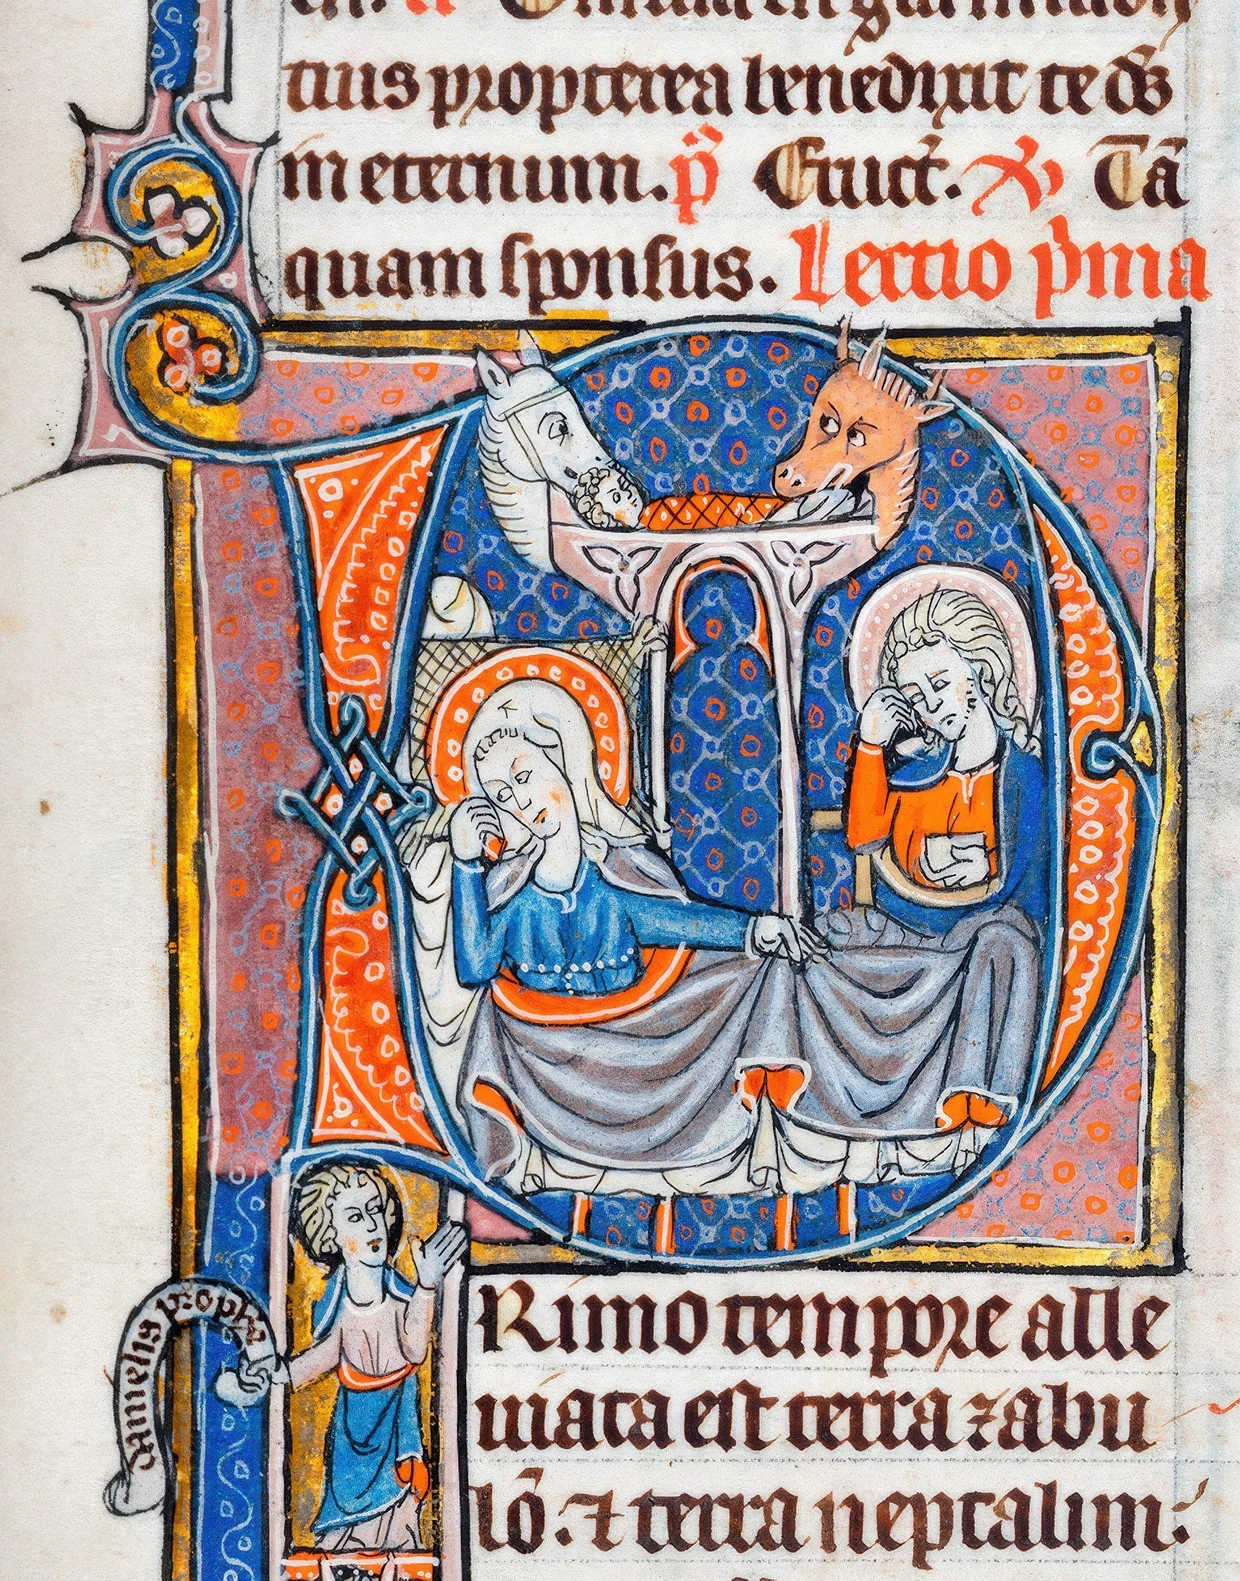 tuus propterea benedixit te ds̄
in eternum. p̄ Eruct̄. ℣ Tā
quam sponsus. Lectio p̄ma
PRimo tempore alle
uiata est terra zabu
lō. ⁊ terra neptalim.
danielis propheta